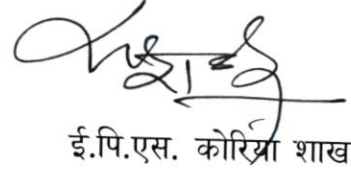 ई.पि.एस. कोरिया शाख